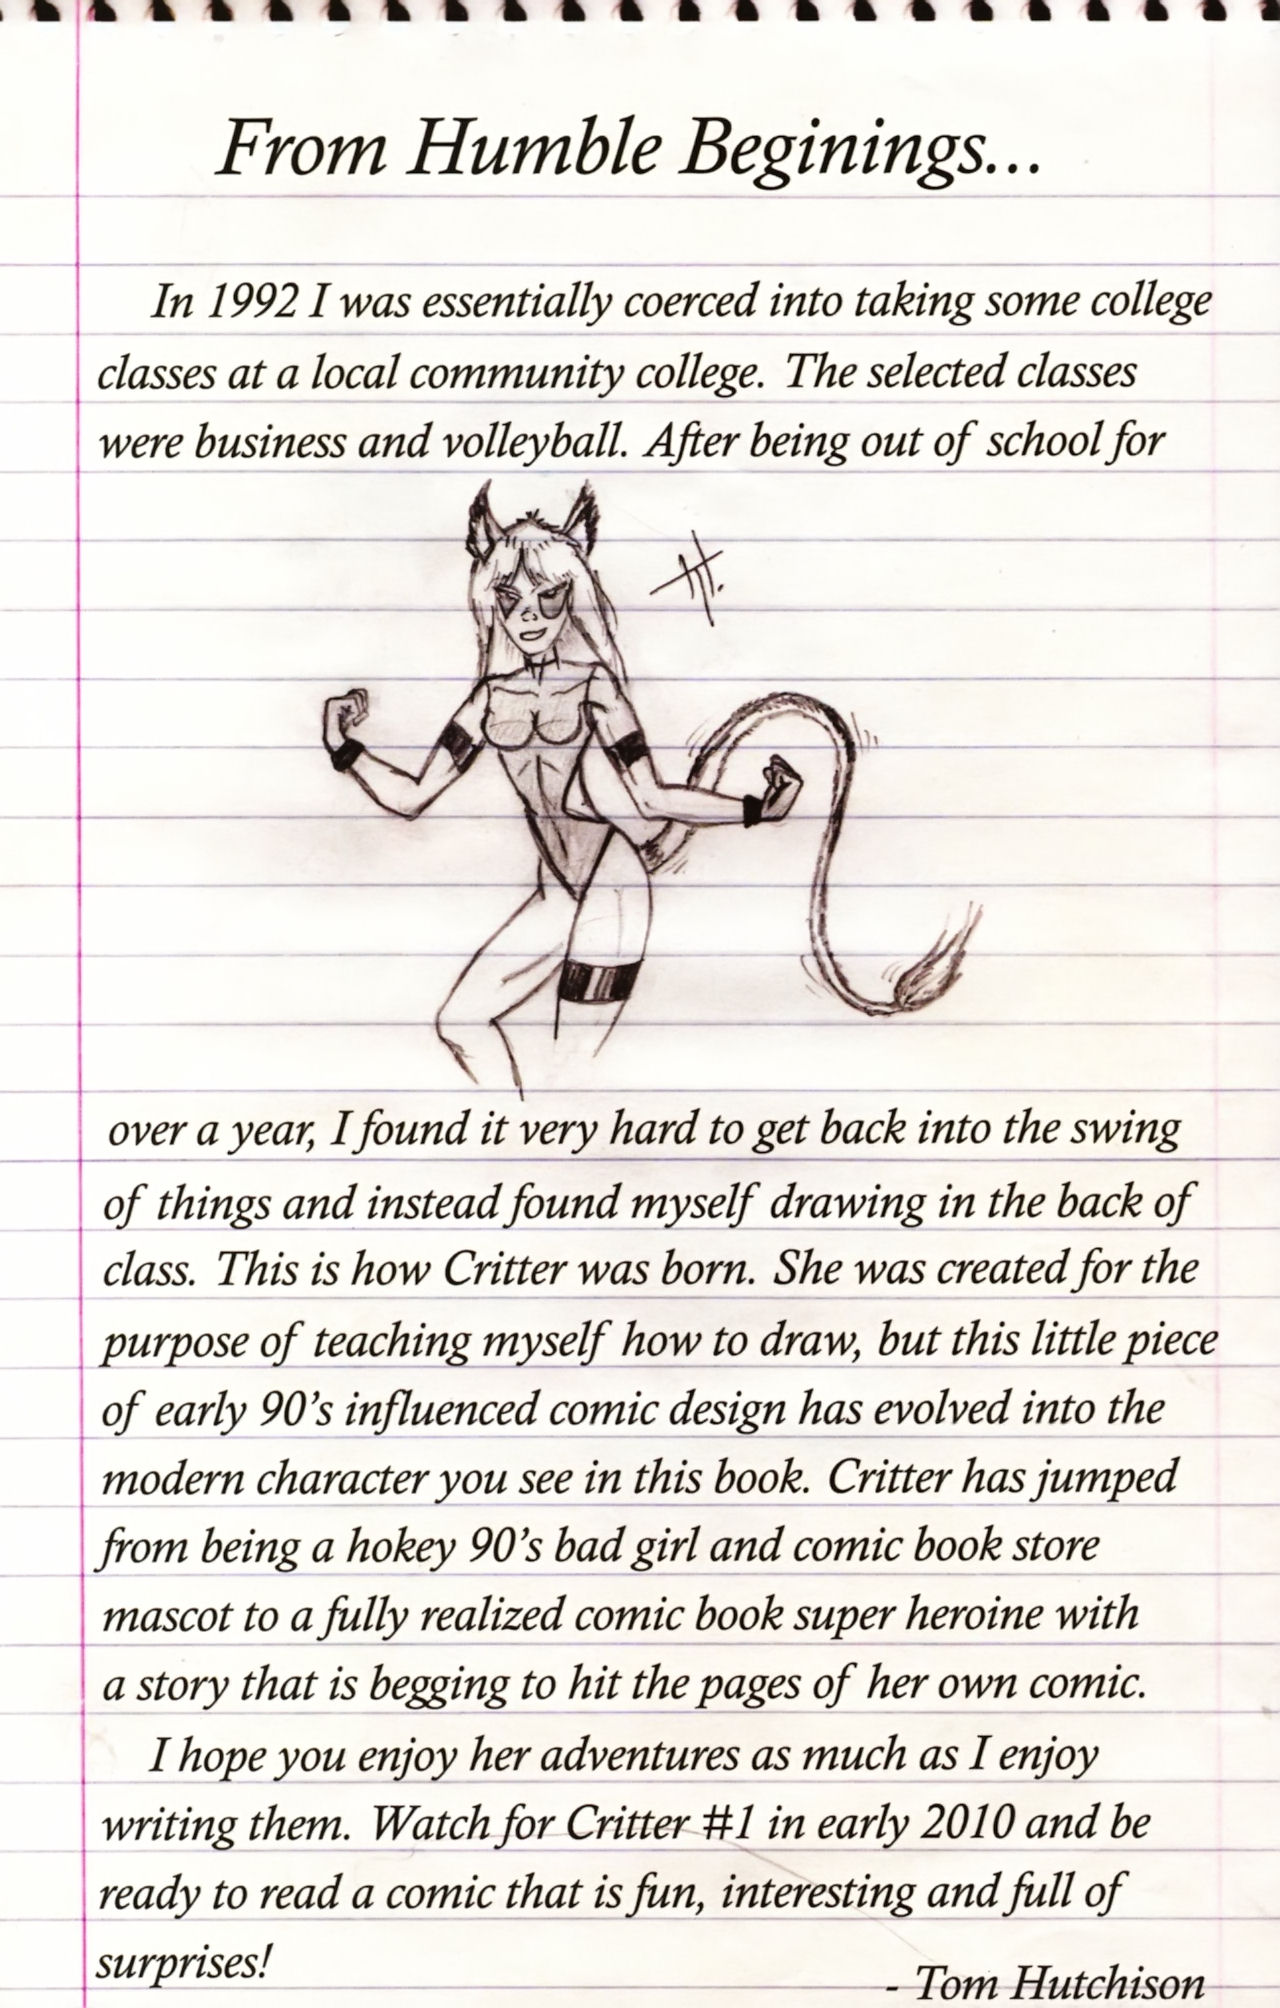 From Humble Beginings...
In 1992 I was essentially coerced into taking some college
classes at a local community college. The selected classes
were business and volleyball. After being out of school for
over a year, I found it very hard to get back into the swing
of things and instead found myself drawing in the back of
class. This is how Critter was born. She was created for the
purpose of teaching myself how to draw, but this little piece
of early 90's influenced comic design has evolved into the
modern character you see in this book. Critter has jumped
from being a hokey 90's bad girl and comic book store
mascot to a fully realized comic book super heroine with
a story that is begging to hit the pages of her own comic.
I hope you enjoy her adventures as much as I enjoy
writing them. Watch for Critter #1 in early 2010 and be
ready to read a comic that is fun, interesting and full of
surprises!
- Tom Hutchison